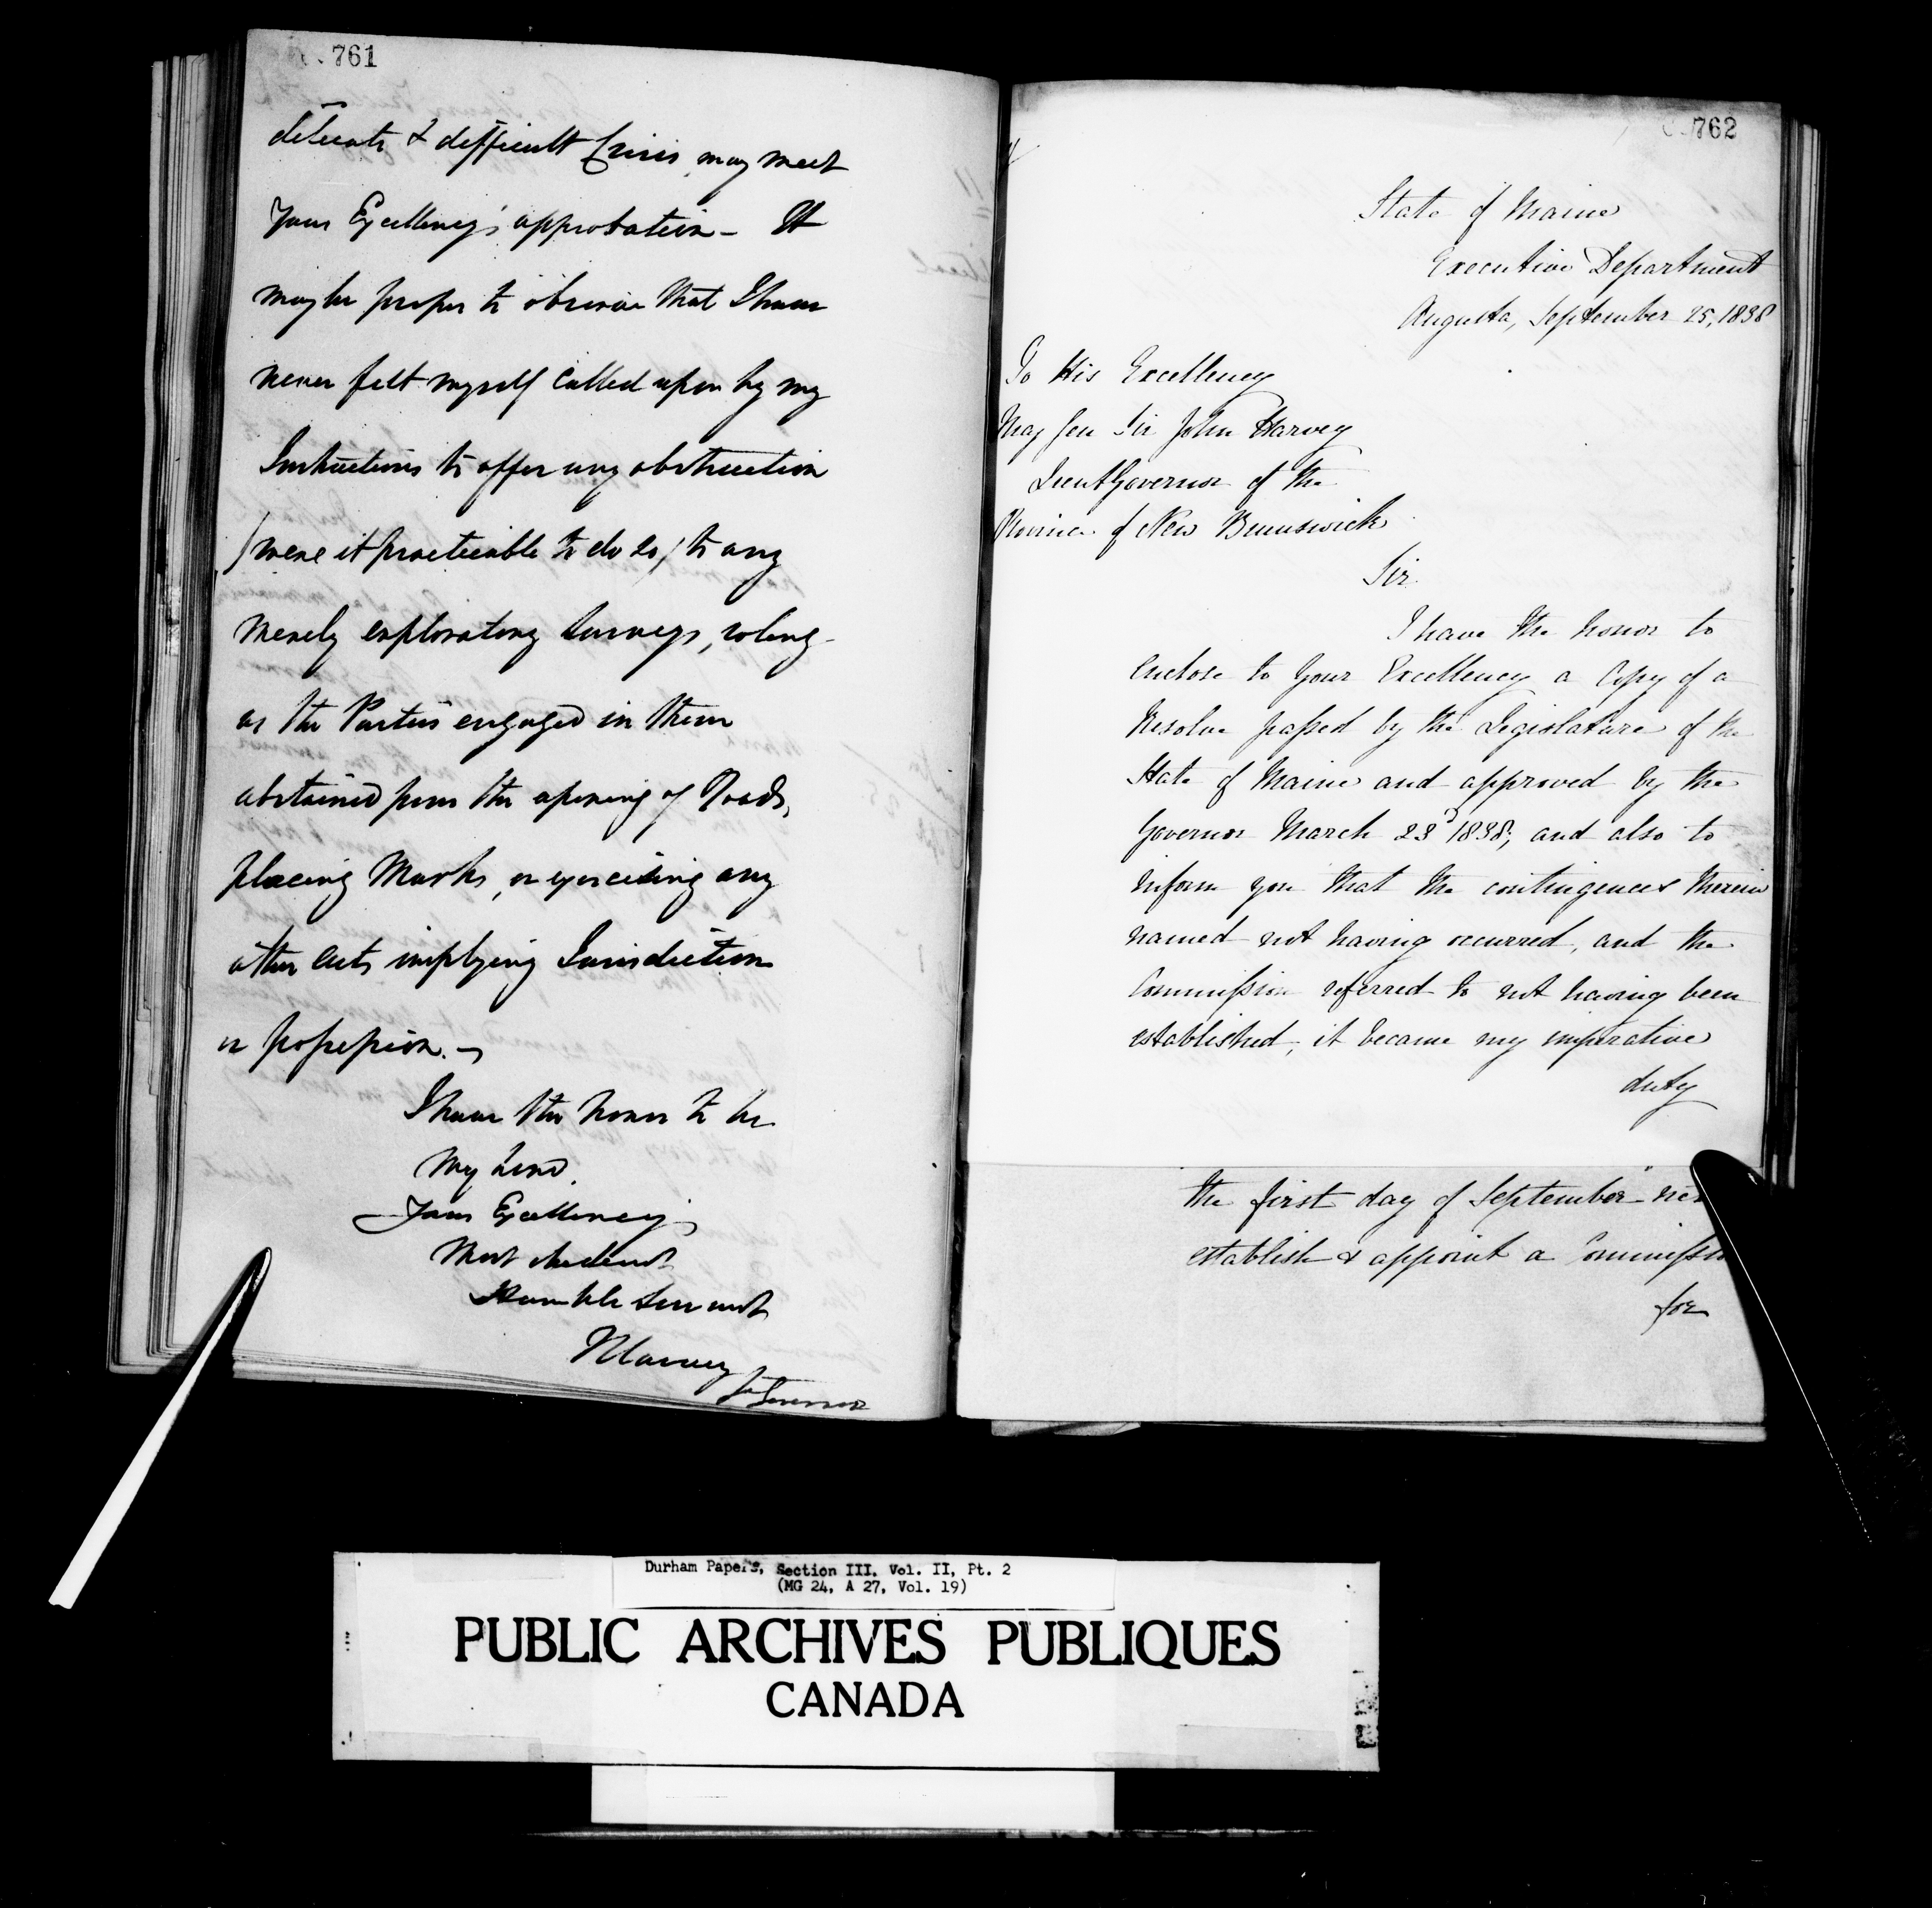 761
delicate & difficult Crisis may meet
Your Excellency's approbation – It
may be proper to observe that I have
never felt myself called upon by my
Instructions to offer any obstruction
(were it practicable to do so) to any
merely exploratory Surveys, so long
as the Parties engaged in them
abstained from the opening of Roads,
placing Marks, or exercising any
other acts implying Jurisdiction
or possession. –
I have the honor to be
My Lord,
Your Excellency's
Most obedient
Humble Servant
J Harvey
Lt Governor
762
State of Maine
Executive Department
Augusta, September 25, 1838
To His Excellency
Maj Gen Sir John Harvey
Lieut Governor of the
Province of New Brunswick
Sir.
I have the honor to
enclose to Your Excellency a Copy of a
Resolve passed by the Legislature of the
State of Maine and approved by the
Governor March 23d 1838; and also to
inform you that the contingences therein
named not having occurred, and the
Commission referred to not having been
established, it became my imperative
duty
the first day of September
establish & appoint a
for
Durham Papers, Section III. Vol. II, Pt. 2
(MG 24, A 27, Vol. 19)
PUBLIC ARCHIVES PUBLIQUES
CANADA